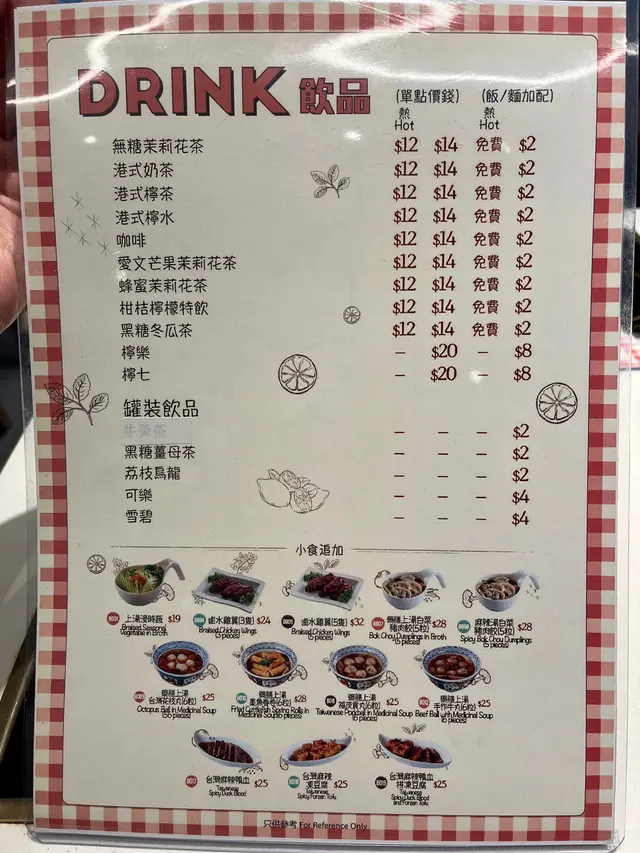 DRINK 飲品 (單點價錢) (飯/麵加配)
熱 熱
Hot Hot
無糖茉莉花茶 $12 $14 免費 $2
港式奶茶 $12 $14 免費 $2
港式檸茶 $12 $14 免費 $2
港式檸水 $12 $14 免費 $2
咖啡 $12 $14 免費 $2
愛文芒果茉莉花茶 $12 $14 免費 $2
蜂蜜茉莉花茶 $12 $14 免費 $2
柑桔檸檬特飲 $12 $14 免費 $2
黑糖冬瓜茶 $12 $14 免費 $2
檸樂 – $20 – $8
檸七 – $20 – $8
罐裝飲品
– – – $2
黑糖薑母茶 – – – $2
荔枝烏龍 – – – $2
可樂 – – – $4
雪碧 – – – $4
小食追加
上湯浸時蔬 $19
Braised Seasonal
Vegetable in Broth
鹵水雞翼(3隻) $24
Braised Chicken Wings
(3 pieces)
鹵水雞翼(5隻) $32
Braised Chicken Wings
(5 pieces)
藥膳上湯白菜
豬肉餃(5粒) $28
Bok Chou Dumplings in Broth
(5 pieces)
麻辣湯白菜
豬肉餃(5粒) $28
Spicy Bok Chou Dumplings
(5 pieces)
藥膳上湯
台灣花枝丸(5粒) $25
Octopus Ball in Medicinal Soup
(5 pieces)
藥膳上湯
墨魚卷 $28
Fried Cuttlefish Spring Rolls in
Medicinal Soup
藥膳上湯
福茂貢丸(5粒) $25
Taiwanese Porkball in Medicinal Soup
藥膳上湯
手作牛丸 $25
Beef Ball with Medicinal Soup
(5 pieces)
台灣麻辣鴨血 $25
Taiwanese
Spicy Duck Blood
台灣麻辣
凍豆腐 $25
Taiwanese
Spicy Frozen Tofu
台灣麻辣鴨血
拼凍豆腐 $25
Taiwanese
Spicy Duck Blood
and Frozen Tofu
只供參考 For Reference Only